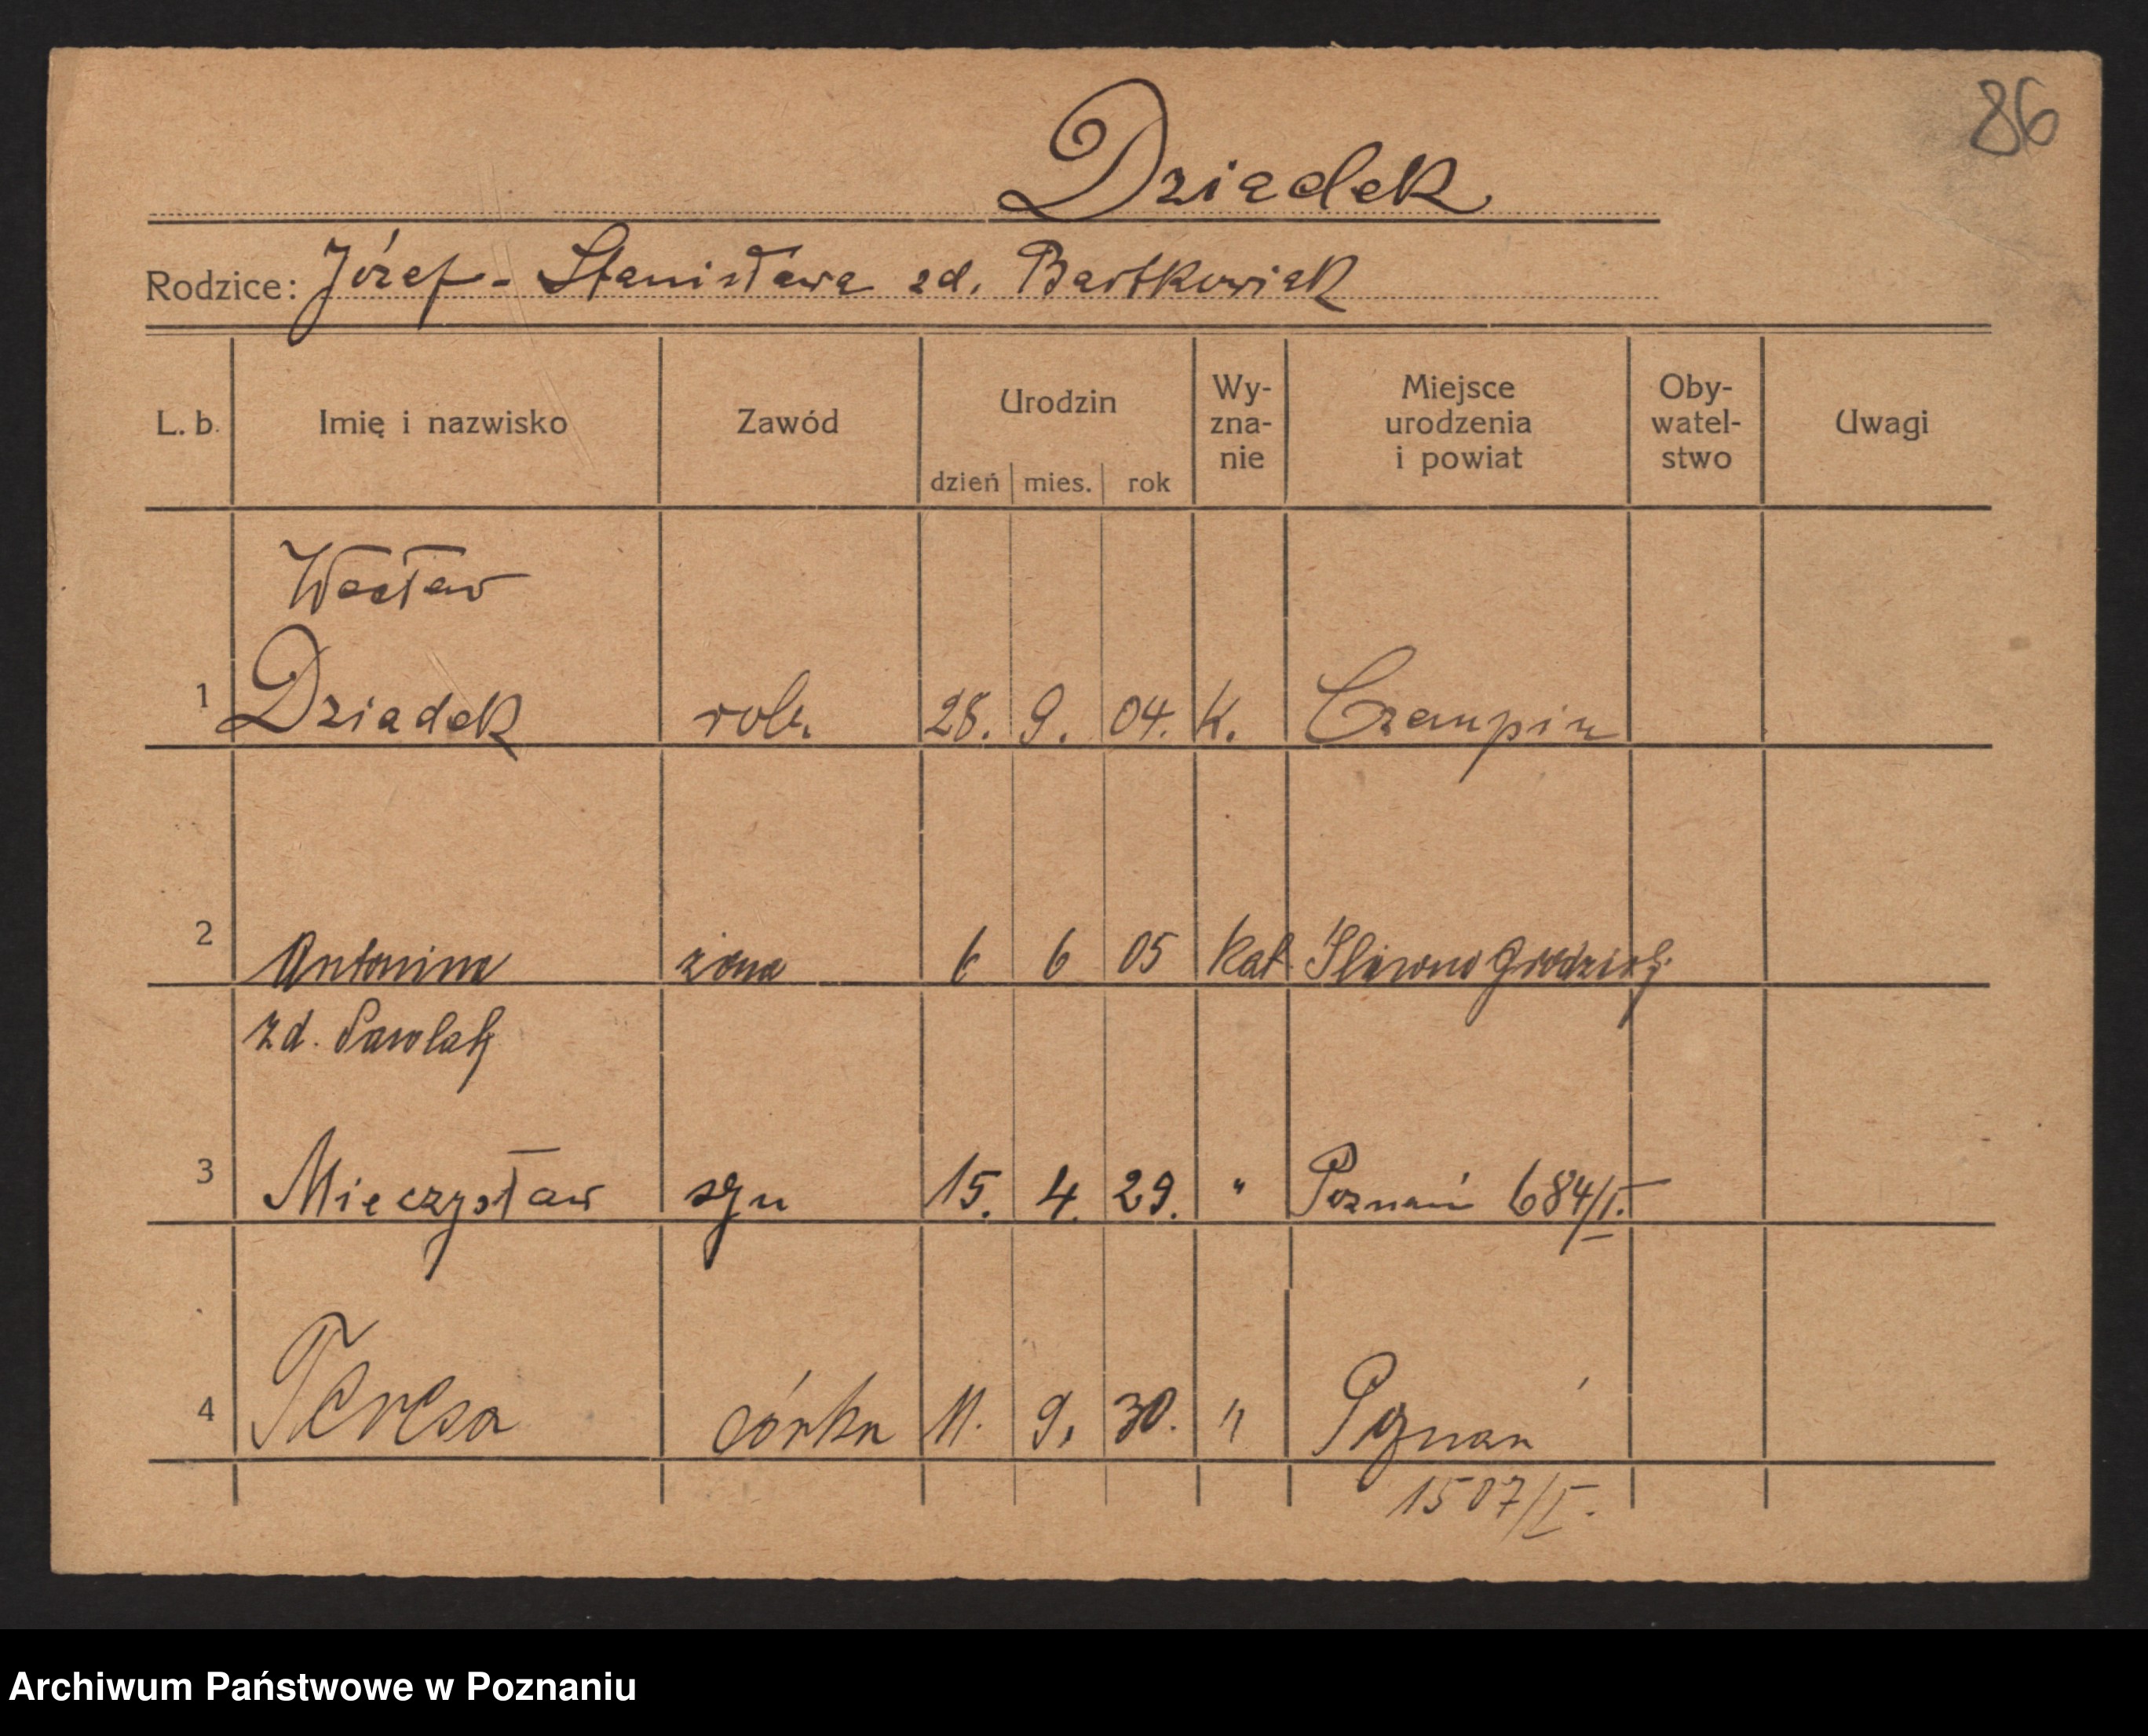 86
Dziadek
Rodzice: Józef - Stanisława zd. Bartkowiak
L. b. Imię i nazwisko Zawód Urodzin dzień mies. rok Wy-zna-nie Miejsce urodzenia i powiat Oby-watel-stwo Uwagi
Wacław
1 Dziadek rob. 28. 9. 04. K. Czempin
2 Antonina żona 6 6 05 kat. Grodzisk
zd.
3 Mieczysław syn 15. 4. 29. " Poznań 684/I.
4 Teresa córka 11. 9. 30. " Poznań
1507/I.
Archiwum Państwowe w Poznaniu